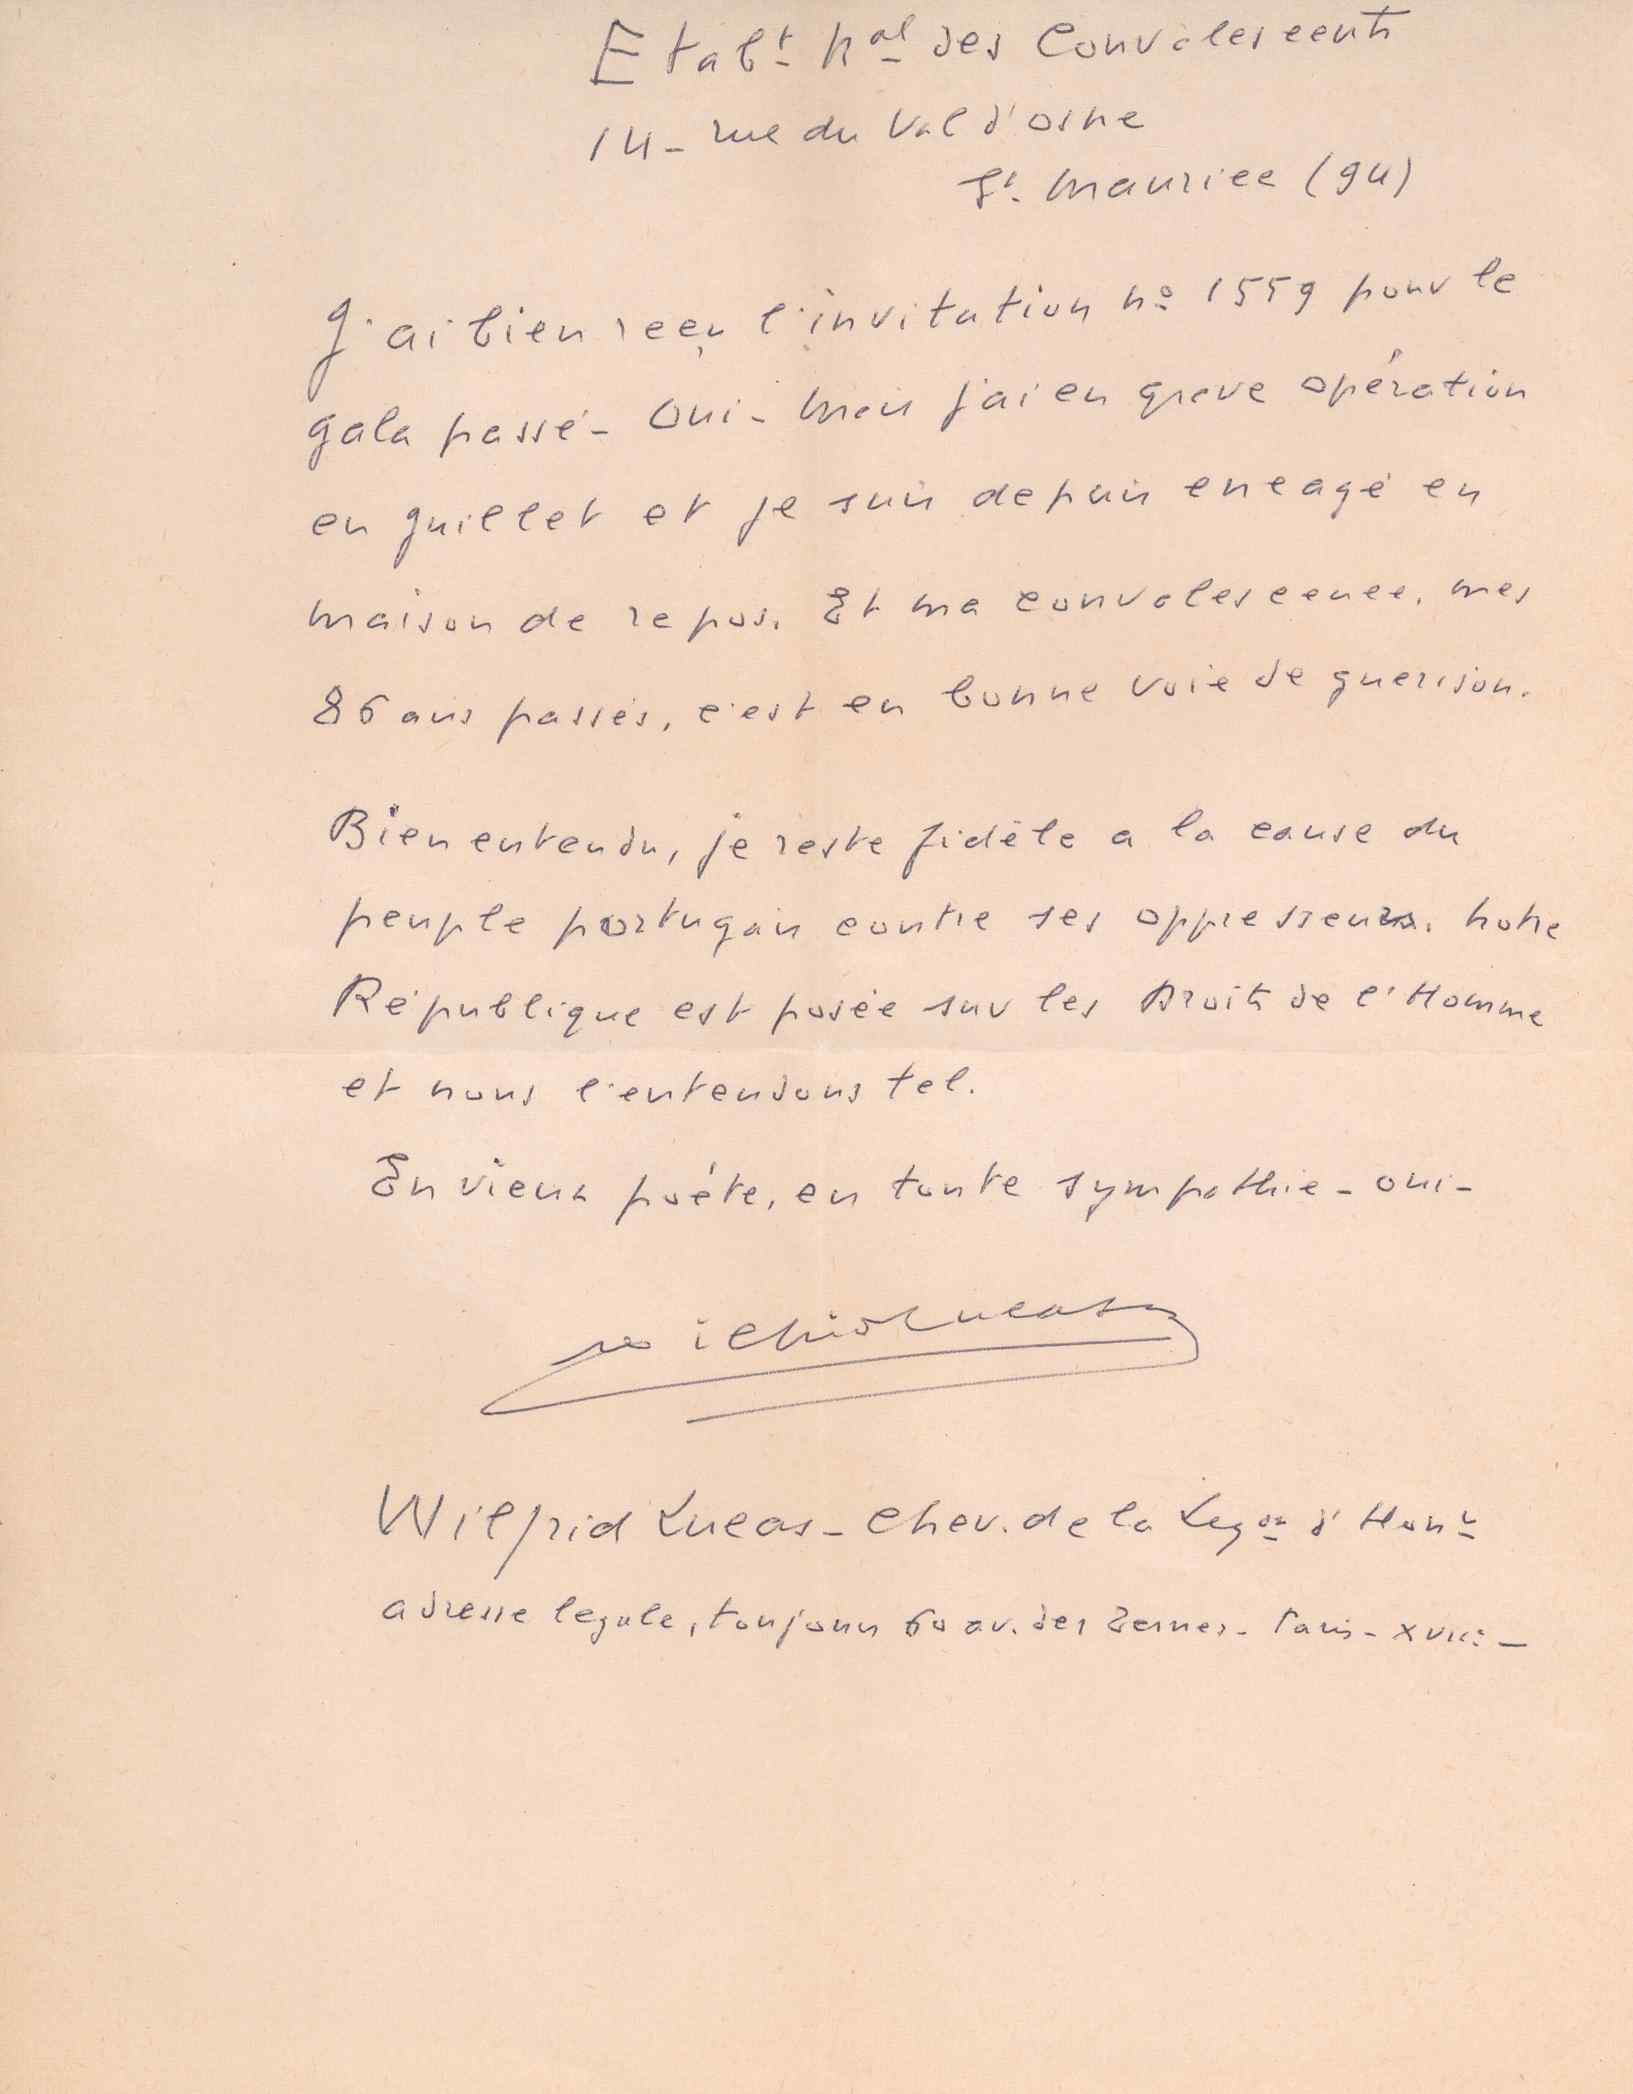 Etabt nal des Convalescents
14 - rue du Val d'Osne
St. Maurice (94)
J'ai bien reçu l'invitation no 1559 pour le
gala passé - Oui - Mais j'ai eu grave opération
en juillet et je suis depuis encagé en
maison de repos. Et ma convalescence, mes
86 ans passés, c'est en bonne voie de guerison.
Bien entendu, je reste fidèle a la cause du
peuple portugais contre ses oppresseurs. Notre
République est posée sur les Droits de l'Homme
et nous l'entendons tel.
En vieux poéte, en toute sympathie - oui -
Wilfrid Lucas
Wilfrid Lucas - Chev. de la Legon d'Honr
adresse legale, toujours 60 av. des Ternes - Paris - XVIIe -